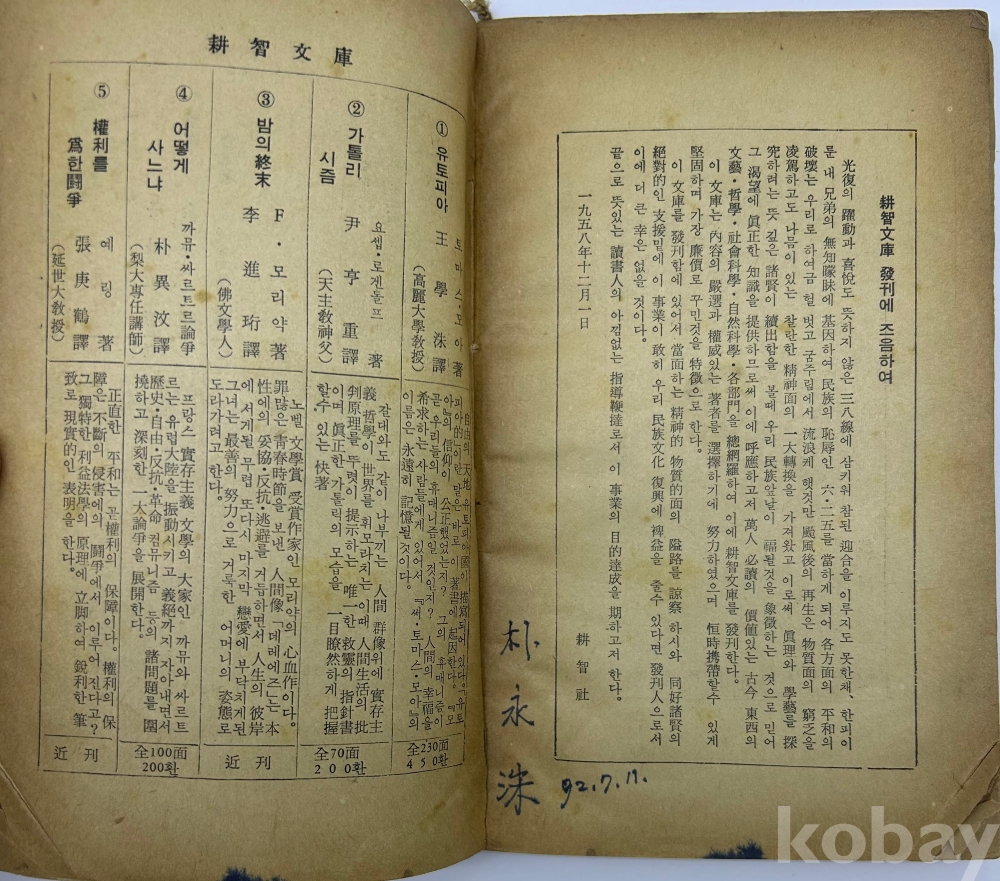 耕智文庫 發刊에 즈음하여
光復의 躍動과 喜悅도 뜻하지 않은 三八線에 삼키워 참된 迎合을 이루지도 못한체、한피이
룬 내 兄弟의 無知矇昧에 基因하여 民族의 恥辱인 六・二五를 當하게 되어 各方面의 平和의
破壞는 우리로 하여금 헐벗고 굶주림에서 流浪케 했것만 颱風後의 再生은 物質面의 窮乏을
凌駕하고도 나믐이 있는 찰란한 精神面의 一大轉換을 가져왔고 이로써 眞理와 學藝를 探
究하려는 뜻 깊은 諸賢이 續出함을 볼때 우리 民族앞날이 福될것을 象徵하는 것으로 믿어
그 渴望에 眞正한 知識을 提供하므로써 이에 呼應하고저 萬人 必讀의 價値있는 古今 東西의
文藝・哲學・社會科學・自然科學・各部門을 總網羅하여 이에 耕智文庫를 發刊한다.
이 文庫는 內容의 嚴選과 權威있는 著者를 選擇하기에 努力하였으며 恒時携帶할수 있게
堅固하며 가장 廉價로 꾸민것을 特徵으로 한다.
이 文庫를 發刊함에 있어서 當面하는 精神的 物質的面의 隘路를 諒察 하시와 同好諸賢의
絕對的인 支援밑에 이 事業이 敢히 우리 民族文化 復興에 裨益을 줄수 있다면 發刊人으로서
이에 더 큰 幸은 없을 것이다.
끝으로 뜻있는 讀書人의 아낌없는 指導鞭達로서 이 事業의 目的達成을 期하고저 한다.
一九五八年十二月一日
耕智社
朴永洙
92.7.11.
耕智文庫
① 유토피아
토마스・모아 著
王學洙 譯
(高麗大學敎授)
自由의 天地 유토피아國이 描寫되어 있다。「유토
피아的이란 말은 바로 이 著書에 起因한다。「모
아」의 信仰이 公正했었는지? 그의 휴매니즘이
곧 우리들의 휴매니즘일 것인지? 人間의 幸福을
希求하는 사람들에게 있어서 『써・토마스・모아』의
이름은 永遠히 記憶될 것이다
全230面
450환
② 가톨리시즘
요셉・로겐돌프 著
尹亨重譯
(天主敎神父)
갈대와도 같이 나부끼는 人間 群像위에 實存主
義 哲學이 世界를 휘모라치는 이때 人間生活의 批
判原理를 뚜렷이 提示하는 唯一한 救靈의 指針書
이며 眞正한 가톨릭의 모습을 一目瞭然하게 把握
할수 있는 快著
全70面
200환
③ 밤의 終末
F・모리약 著
李進珩譯
(佛文學人)
노벨 文學賞 受賞作家인 모리약의 心血作이다。
罪많은 靑春時節을 보낸 人間像「데레에즈」는 本
性에의 妥協・反抗・逃避를 거듭하면서 人生의 彼岸
에 서게될 무렵 또다시 마지막 戀愛에 부닥치게된
그녀는 最善의 努力으로 거룩한 어머니의 姿態로
도라가려고 한다。
近刊
④ 어떻게 사느냐
까뮤・싸르트르論爭
朴異汶譯
(梨大專任講師)
프랑스 實存主義 文學의 大家인 까뮤와 싸르트
르는 유럽大陸을 振動시키고 義絕까지 자아내면서
歷史・自由・反抗・革命 컴뮤니즘 등의 諸問題를 圍
撓하고 深刻한 一大論爭을 展開한다。
全100面
200환
⑤ 權利를 爲한 鬪爭
예링 著
張庚鶴譯
(延世大敎授)
正直한 平和는 곧 權利의 保障이다。權利의 保
障은 不斷의 侵害에의 鬪爭에서 이루어진다고?
그 獨特한 利益法學의 原理에 立脚하여 銳利한 筆
致로 現實的인 表明을 한다。
近刊
kobay